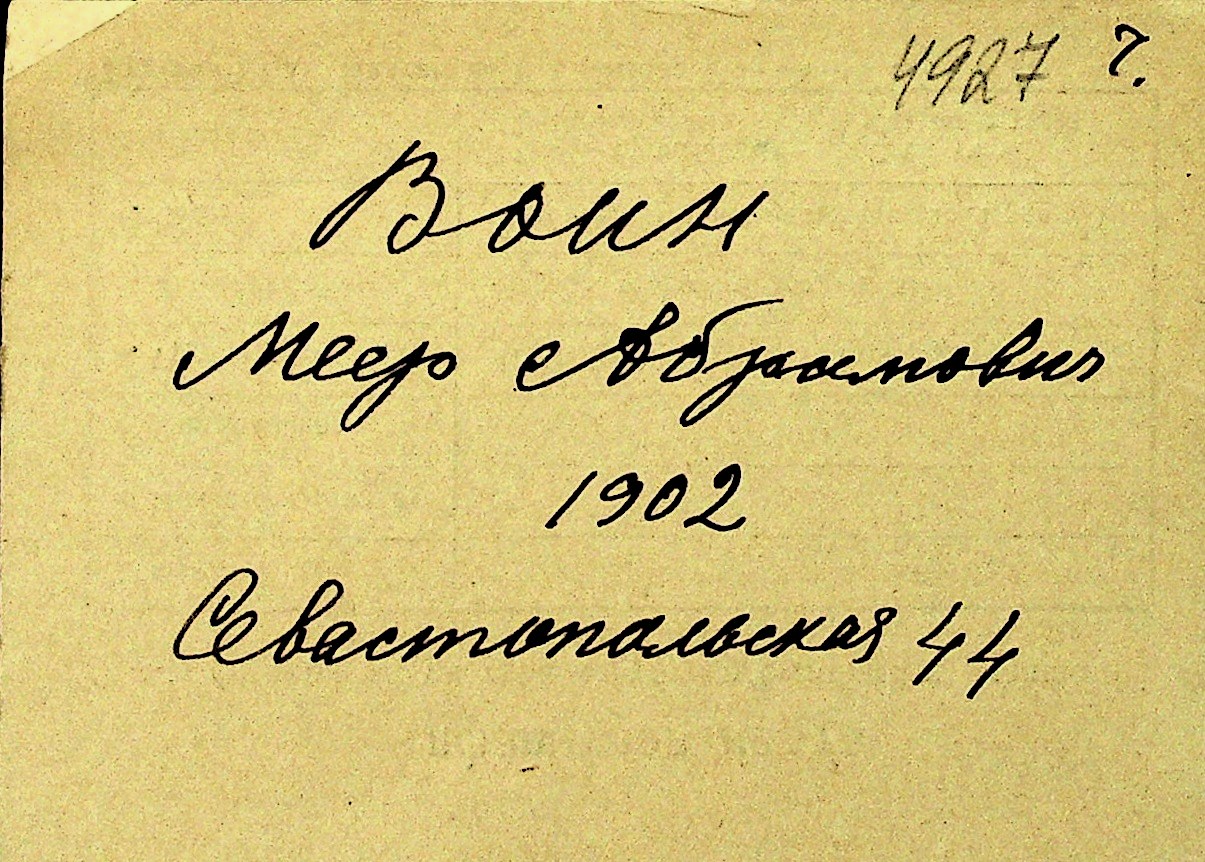 4927 ч.
Воин
Меер Абрамович
1902
Севастопальская 44